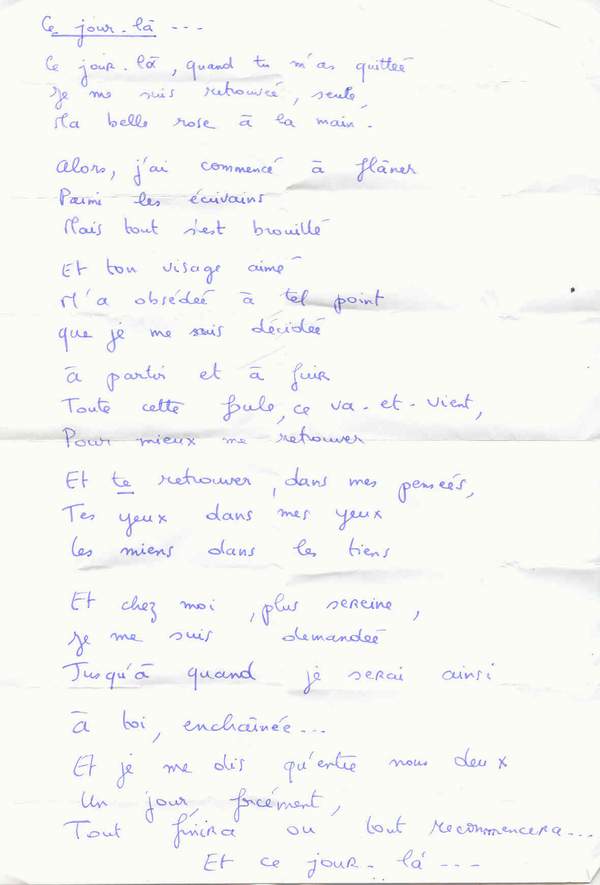 Ce jour-là ---
Ce jour-là, quand tu m'as quittée
Je me suis retrouvée, seule,
Ma belle rose à la main.
Alors, j'ai commencé à flâner
Parmi les écrivains
Mais tout s'est brouillé
Et ton visage aimé
M'a obsédée à tel point
que je me suis décidée
à partir et à fuir
Toute cette foule, ce va-et-vient,
Pour mieux me retrouver
Et te retrouver, dans mes pensées,
Tes yeux dans mes yeux
Les miens dans les tiens
Et chez moi, plus sereine,
Je me suis demandée
Jusqu'à quand je serai ainsi
à toi, enchaînée...
Et je me dis qu'entre nous deux
Un jour forcément,
Tout finira ou tout recommencera...
Et ce jour-là ---